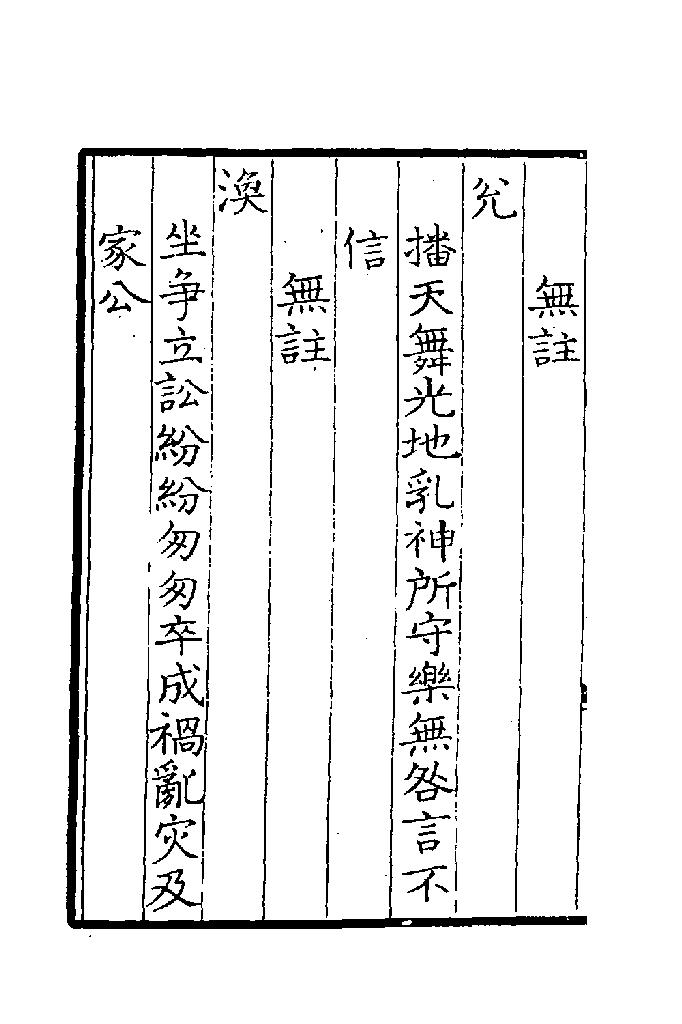 無註
兊
播天舞光地乳神所守樂無咎言不
信
無註
渙
坐争立訟紛紛匆匆卒成禍亂灾及
家公